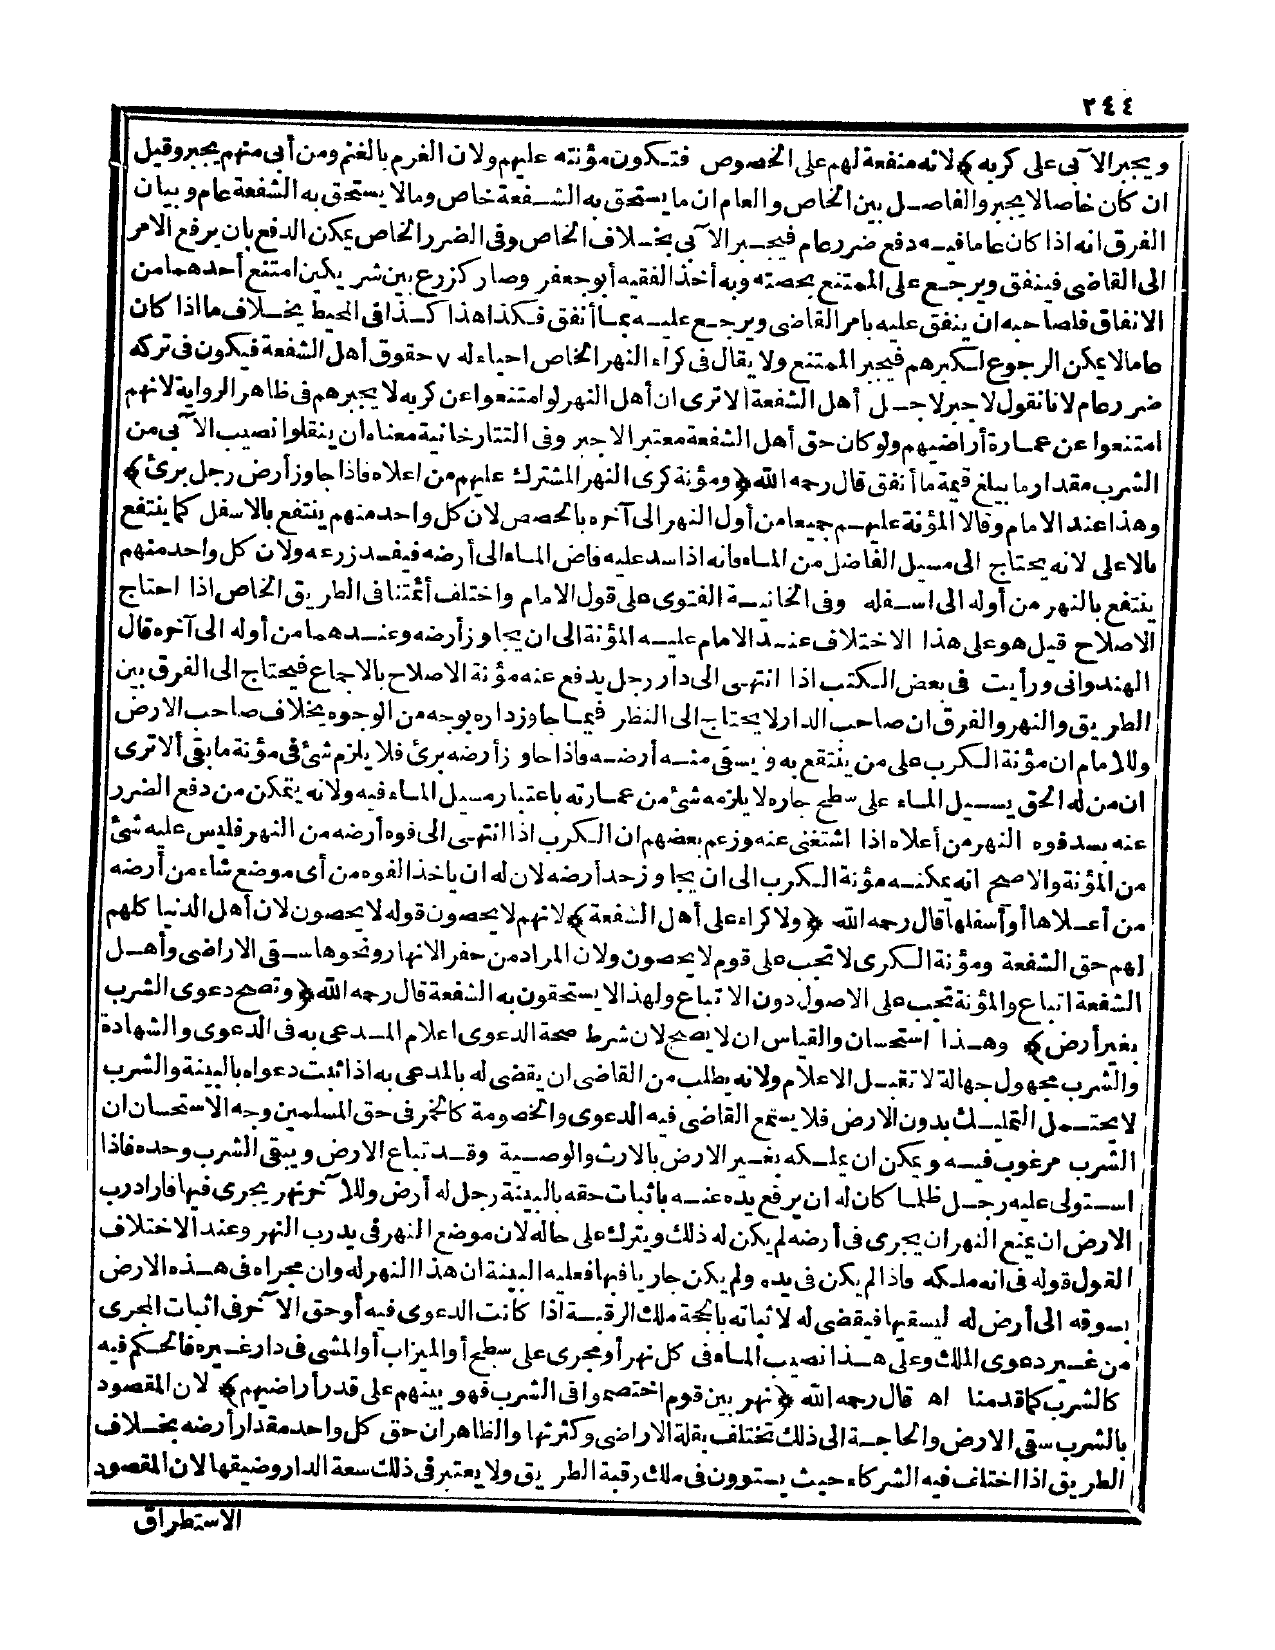 ٢٤٤
ويجبر الآبى على كريه﴾ لانه منفعة لهم على الخصوص فتكون مؤنته عليهم ولان الغرم بالغنم ومن أبى منهم يجبر وقيل
ان كان خاصا لا يجبر والفاصل بين الخاص والعام ان ما يستحق به الشفعة خاص وما لا يستحق به الشفعة عام وبيان
الفرق انه اذا كان عاما فيه دفع ضرر عام فيجبر الآبى بخلاف الخاص وفى الضرر الخاص يمكن الدفع بان يرفع الامر
الى القاضى فينفق ويرجع على الممتنع بحصته وبه أخذ الفقيه أبو جعفر وصار كزرع بين شريكين امتنع أحدهما من
الانفاق فلصاحبه ان ينفق عليه بامر القاضى ويرجع عليه بما أنفق فكذا هذا كذا فى المحيط بخلاف ما اذا كان
عاما لا يمكن الرجوع لكبرهم فيجبر الممتنع ولا يقال فى كراء النهر الخاص احياء له ٧ حقوق أهل الشفعة فيكون فى تركه
ضرر عام لانا نقول لا جبر لاجل أهل الشفعة الا ترى ان أهل النهر لو امتنعوا عن كريه لا يجبرهم فى ظاهر الرواية لانهم
امتنعوا عن عمارة أراضيهم ولو كان حق أهل الشفعة معتبر الاجبر وفى التتارخانية معناه ان ينقلوا نصيب الآبى من
الشرب مقدار ما يبلغ قيمة ما أنفق قال رحمه الله ﴿ومؤنة كرى النهر المشترك عليهم من اعلاه فاذا جاوز أرض رجل برئ﴾
وهذا عند الامام وقالا المؤنة عليهم جميعا من أول النهر الى آخره بالحصص لان كل واحد منهم ينتفع بالاسفل كما ينتفع
بالاعلى لانه يحتاج الى مسيل الفاضل من الماء فانه اذا سد عليه فاض الماء الى أرضه فيفسد زرعه ولان كل واحد منهم
ينتفع بالنهر من أوله الى اسفله وفى الخانية الفتوى على قول الامام واختلف أئمتنا فى الطريق الخاص اذا احتاج
الاصلاح قيل هو على هذا الاختلاف عند الامام عليه المؤنة الى ان يجاوز أرضه وعندهما من أوله الى آخره قال
الهندوانى ورأيت فى بعض الكتب اذا انتهى الى دار رجل يدفع عنه مؤنة الاصلاح بالاجماع فيحتاج الى الفرق بين
الطريق والنهر والفرق ان صاحب الدار لا يحتاج الى النظر فيما جاوز داره بوجه من الوجوه بخلاف صاحب الارض
وللامام ان مؤنة الكرب على من ينتفع به ويسقى منه أرضه فاذا جاوز أرضه برئ فلا يلزم شئ فى مؤنة ما بقى ألا ترى
ان من له الحق يسيل الماء على سطح جاره لا يلزمه شئ من عمارته باعتبار مسيل الماء فيه ولانه يتمكن من دفع الضرر
عنه بسد فوه النهر من أعلاه اذا اشتغنى عنه وزعم بعضهم ان الكرب اذا انتهى الى فوه أرضه من النهر فليس عليه شئ
من المؤنة والاصح انه يمكنه مؤنة الكرب الى ان يجاوز حد أرضه لان له ان ياخذ الفوه من أى موضع شاء من أرضه
من أعلاها أو أسفلها قال رحمه الله ﴿ولا كراء على أهل الشفعة﴾ لانهم لا يحصون قوله لا يحصون لان أهل الدنيا كلهم
لهم حق الشفعة ومؤنة الكرى لا تجب على قوم لا يحصون ولان المراد من حفر الانهار ونحوها سقى الاراضى وأهل
الشفعة اتباع والمؤنة تجب على الاصول دون الاتباع ولهذا لا يستحقون به الشفعة قال رحمه الله ﴿وتصح دعوى الشرب
بغير أرض﴾ وهذا استحسان والقياس ان لا يصح لان شرط صحة الدعوى اعلام المدعى به فى الدعوى والشهادة
والشرب مجهول جهالة لا تقبل الاعلام ولانه يطلب من القاضى ان يقضى له بالمدعى به اذا ثبت دعواه بالبينة والشرب
لا يحتمل التمليك بدون الارض فلا يستمع القاضى فيه الدعوى والخصومة كالخمر فى حق المسلمين وجه الاستحسان ان
الشرب مرغوب فيه ويمكن ان يملكه بغير الارض بالارث والوصية وقد تباع الارض ويبقى الشرب وحده فاذا
استولى عليه رجل ظلما كان له ان يرفع يده عنه باثبات حقه بالبينة رجل له أرض وللآخر نهر يجرى فيها فاراد رب
الارض ان يمنع النهر ان يجرى فى أرضه لم يكن له ذلك ويترك على حاله لان موضع النهر فى يد رب النهر وعند الاختلاف
القول قوله فى انه ملكه فاذا لم يكن فى يده ولم يكن جاريا فيها فعليه البينة ان هذا النهر له وان مجراه فى هذه الارض
بسوقه الى أرض له ليسقيها فيقضى له لاثباته بالحجة ملك الرقبة اذا كانت الدعوى فيه أو حق الآخر فى اثبات المجرى
من غير دعوى الملك وعلى هذا نصيب الماء فى كل نهر أو مجرى على سطح أو الميزاب أو المشى فى دار غيره فالحكم فيه
كالشرب كما قدمنا اه قال رحمه الله ﴿نهر بين قوم اختصموا فى الشرب فهو بينهم على قدر أراضيهم﴾ لان المقصود
بالشرب سقى الارض والحاجة الى ذلك تختلف بقلة الاراضى وكثرتها والظاهر ان حق كل واحد مقدار أرضه بخلاف
الطريق اذا اختلف فيه الشركاء حيث يستوون فى ملك رقبة الطريق ولا يعتبر فى ذلك سعة الدار وضيقها لان المقصود
الاستطراق